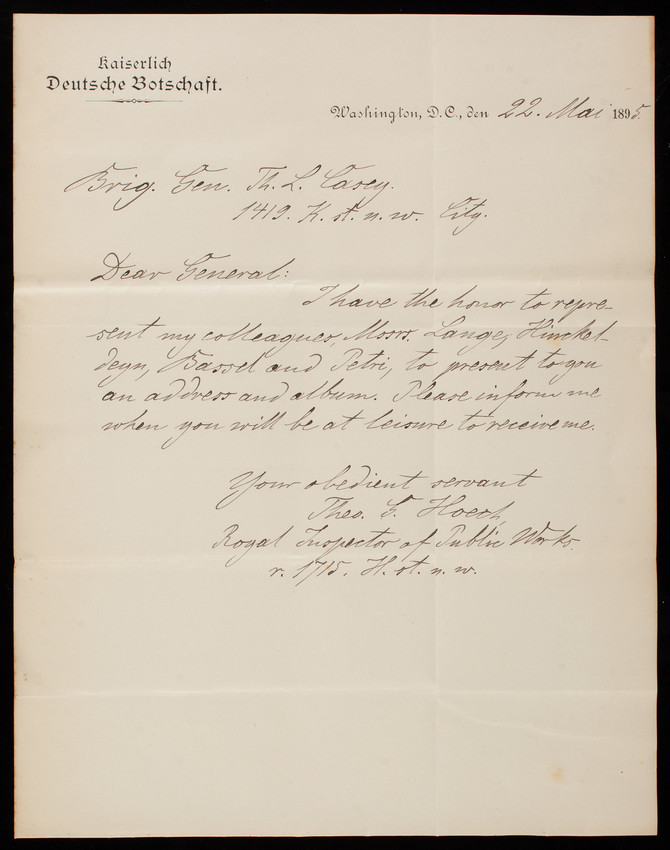 Kaiserlich
Deutsche Botschaft.
Washington, D.C., den 22. Mai 1895.
Brig. Gen. Th. L. Casey.
1419. K. st. n. w. City.
Dear General:
I have the honor to repre-
sent my colleagues, Messrs. Lange, Hinckel-
deyn, Bassel and Petri, to present to you
an address and album. Please inform me
when you will be at leisure to receive me.
Your obedient servant
Theo. G. Hoech,
Royal Inspector of Public Works.
r. 1715. H. st. n. w.